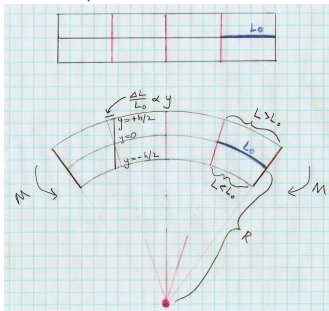 L₀
ΔL/L₀ ∝ y
y=+h/2
y=0
y=-h/2
L>L₀
L₀
L<L₀
M
M
R